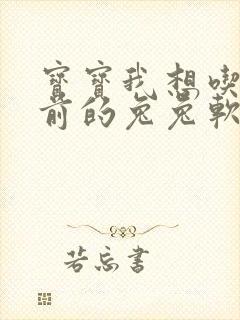 寶寶我想喫
前的兔兔軟
若忘書